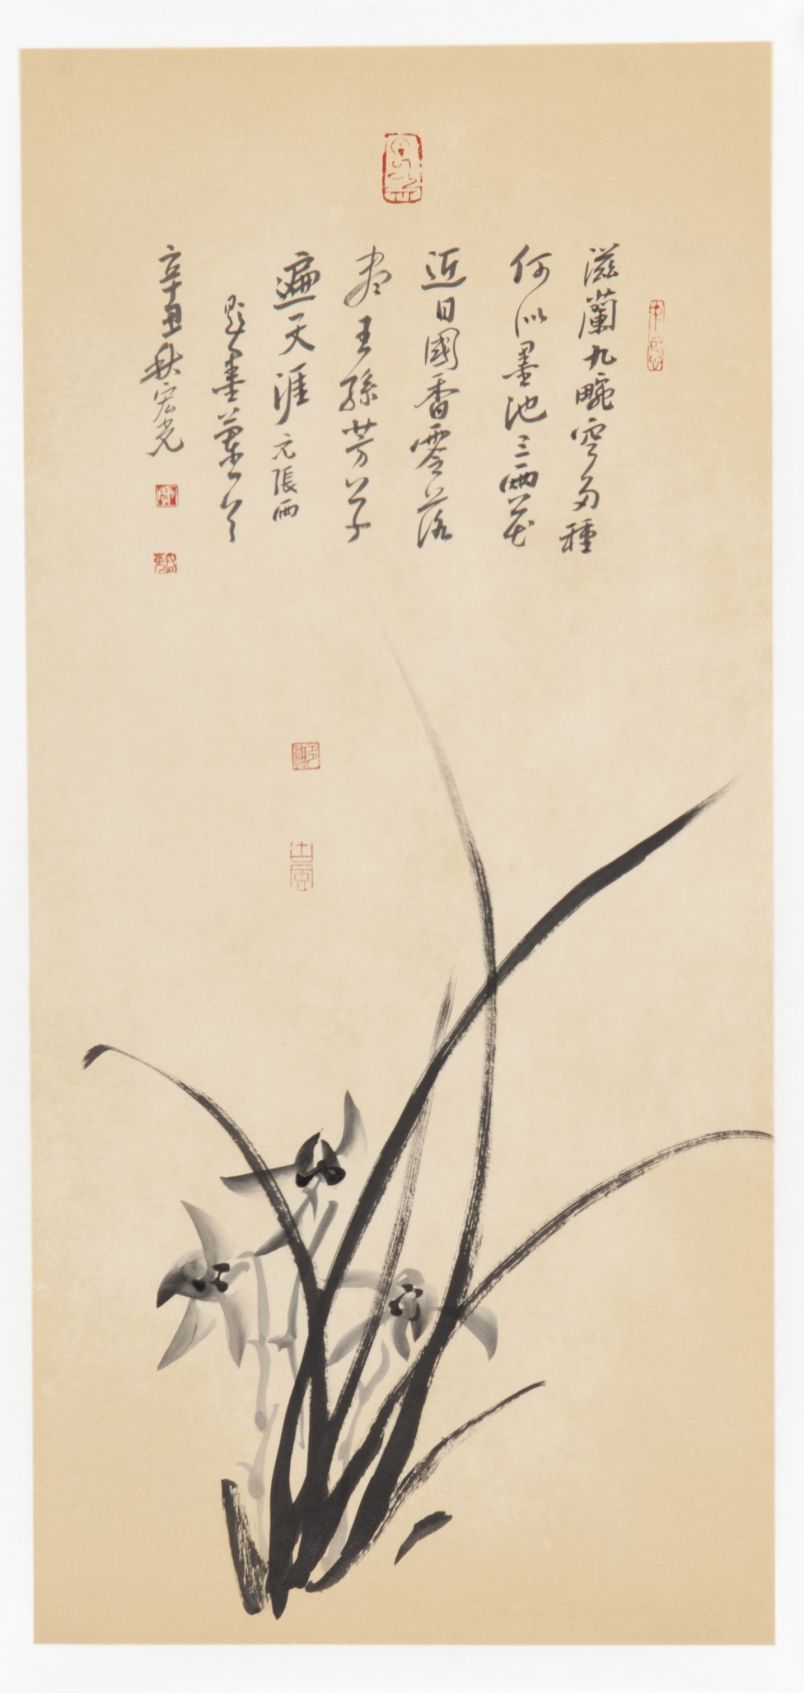 滋蘭九畹空多種
何似墨池三兩花
近日國香零落
盡王孫芳草
遍天涯元張雨
題畫蘭一首
辛丑秋宏光